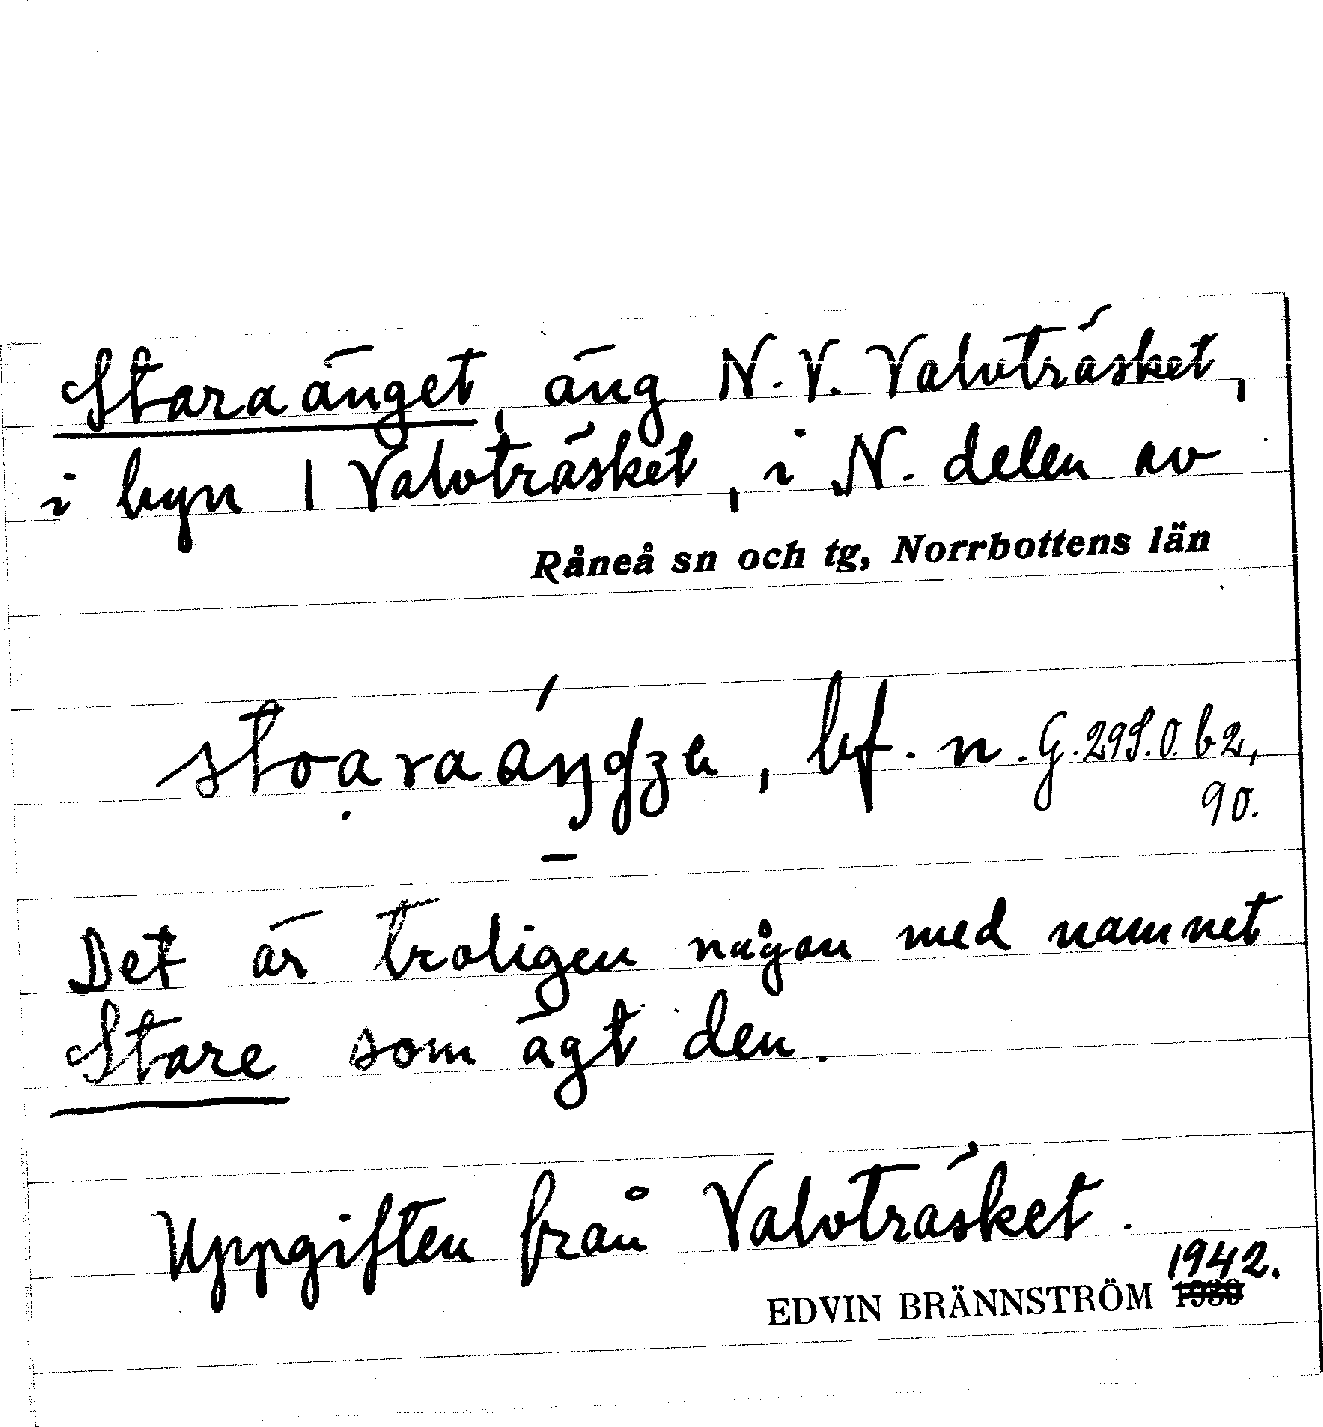 Staraänget, äng N.V. Valvträsket,
i byn 1 Valvträsket, i N. delen av
Råneå sn och tg, Norrbottens län
bf. n.
90.
Det är troligen någon med namnet
Stare som ägt den.
Uppgiften från Valvträsket.
1942.
EDVIN BRÄNNSTRÖM